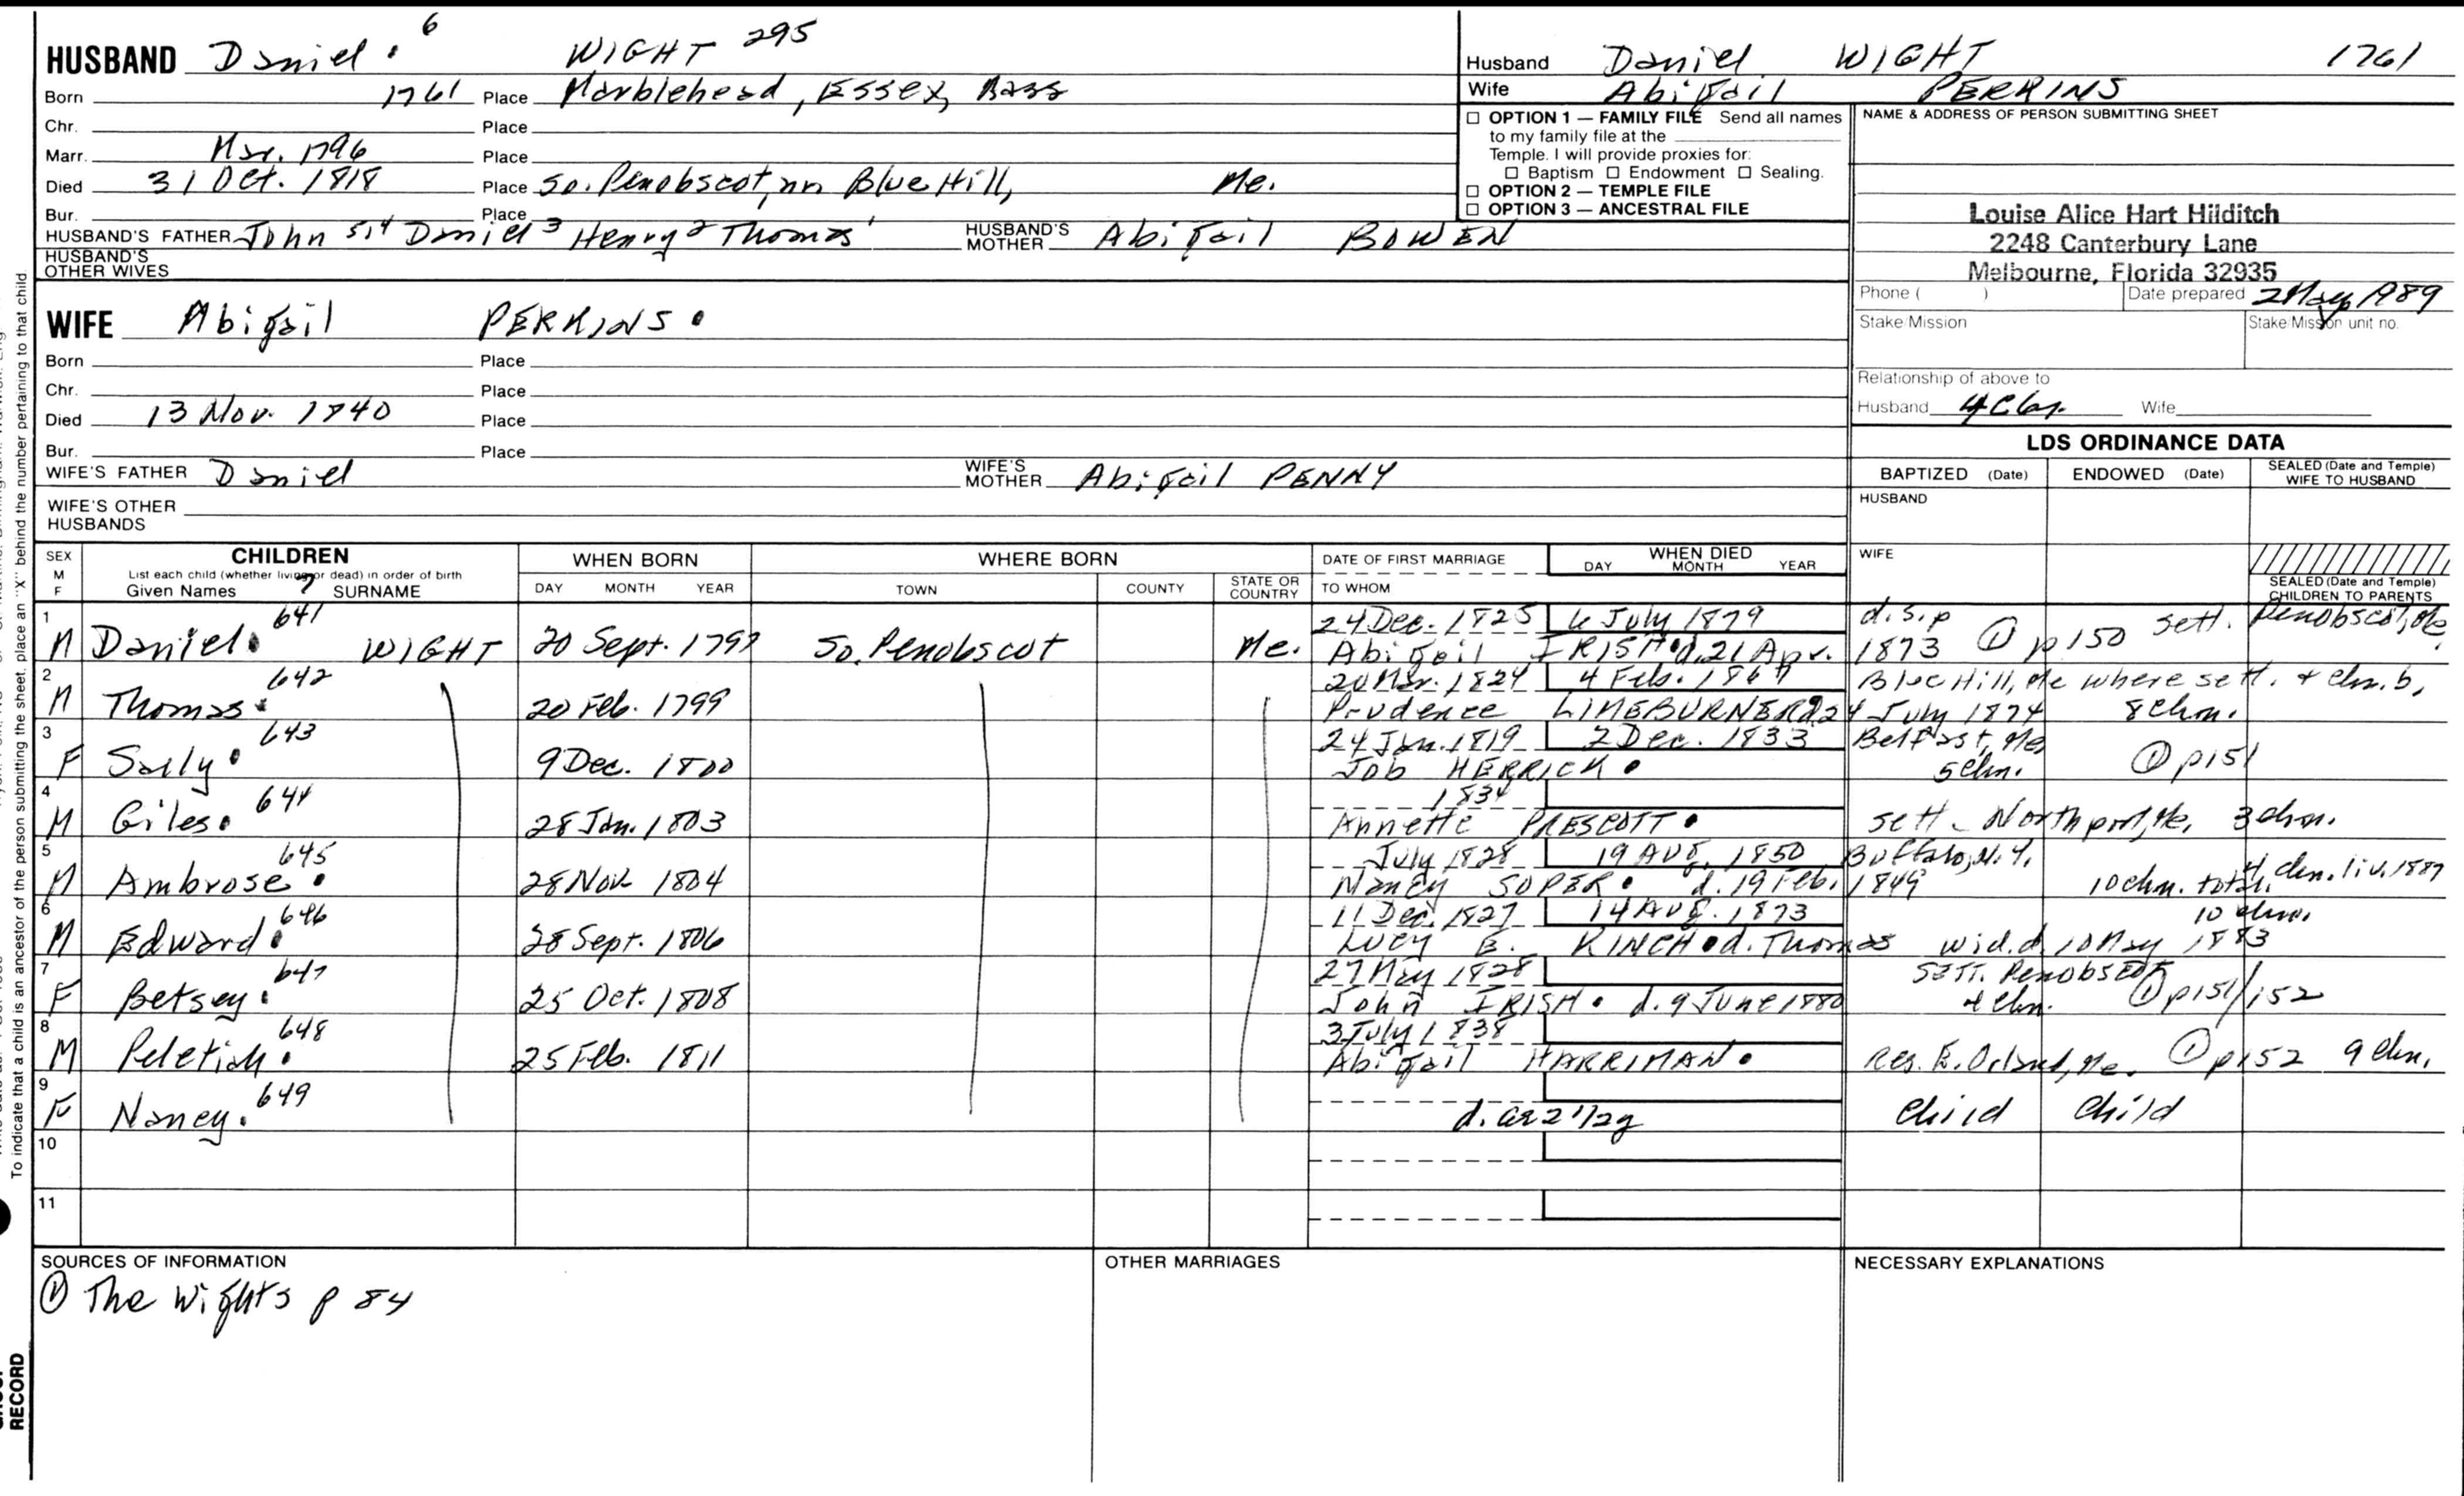 HUSBAND Daniel. 6 WIGHT 295
Born 1761 Place Marblehead, Essex, Mass
Chr. Place
Marr. Mar. 1796 Place
Died 31 Oct. 1818 Place So. Penobscot, nr Blue Hill, Me.
Bur. Place
HUSBAND'S FATHER John 5,4 Daniel 3 Henry 2 Thomas 1 HUSBAND'S MOTHER Abigail BOWEN
HUSBAND'S OTHER WIVES
Husband Daniel WIGHT 1761
Wife Abigail PERKINS
☐ OPTION 1 — FAMILY FILE Send all names
to my family file at the
Temple. I will provide proxies for:
☐ Baptism ☐ Endowment ☐ Sealing.
☐ OPTION 2 — TEMPLE FILE
☐ OPTION 3 — ANCESTRAL FILE
NAME & ADDRESS OF PERSON SUBMITTING SHEET
Louise Alice Hart Hilditch
2248 Canterbury Lane
Melbourne, Florida 32935
Phone ( ) Date prepared 2 May 1989
Stake/Mission Stake/Mission unit no.
Relationship of above to
Husband 4C6r. Wife
WIFE Abigail PERKINS.
Born Place
Chr. Place
Died 13 Nov. 1840 Place
Bur. Place
WIFE'S FATHER Daniel WIFE'S MOTHER Abigail PENNY
WIFE'S OTHER HUSBANDS
LDS ORDINANCE DATA
BAPTIZED (Date) ENDOWED (Date) SEALED (Date and Temple) WIFE TO HUSBAND
HUSBAND
WIFE
SEALED (Date and Temple) CHILDREN TO PARENTS
SEX M F CHILDREN
List each child (whether living or dead) in order of birth
Given Names 7 SURNAME
WHEN BORN DAY MONTH YEAR
WHERE BORN TOWN COUNTY STATE OR COUNTRY
DATE OF FIRST MARRIAGE TO WHOM
WHEN DIED DAY MONTH YEAR
1 641 24 Dec. 1825 6 July 1879 d.s.p ① p150 sett. Penobscot, Me.
M Daniel. WIGHT 20 Sept. 1797 So. Penobscot Me. Abigail IRISH. d. 21 Apr. 1873
2 642 20 Mar. 1824 4 Feb. Blue Hill, Me where sett. + chn. b.
M Thomas. 20 Feb. 1799 Prudence LIMEBURNER d. 24 July 1874 8 chn.
3 643 24 Jan. 1819 2 Dec. 1833 Belfast, Me
F Sally. 9 Dec. 1800 Job HERRICK. 5 chn. ① p151
4 644 1834
M Giles. 28 Jan. 1803 Annette PRESCOTT. sett. Northport, Me. 3 chn.
5 645 July 1828 19 Aug. 1850 Buffalo, N.Y.
M Ambrose. 28 Nov. 1804 Nancy SOPER. d. 19 Feb. 1849 10 chn. total, 4 chn. liv. 1887
6 646 11 Dec. 1827 14 Aug. 1873 10 chn.
M Edward. 28 Sept. 1806 Lucy E. KINCH. d. Thomas wid. d. 10 May 1883
7 647 27 May 1828 sett. Penobscot
F Betsey. 25 Oct. 1808 John IRISH. d. 9 June 1880 4 chn. ① p151/152
8 648 3 July 1838
M Peletiah. 25 Feb. 1811 Abigail HARRIMAN. Res. E. Orland, Me. ① p152 9 chn.
9 649
F Nancy. d. ae 2 1/2 y child child
10
11
SOURCES OF INFORMATION
① The Wights p 84
OTHER MARRIAGES
NECESSARY EXPLANATIONS
To indicate that a child is an ancestor of the person submitting the sheet, place an "X" behind the number pertaining to that child
RECORD